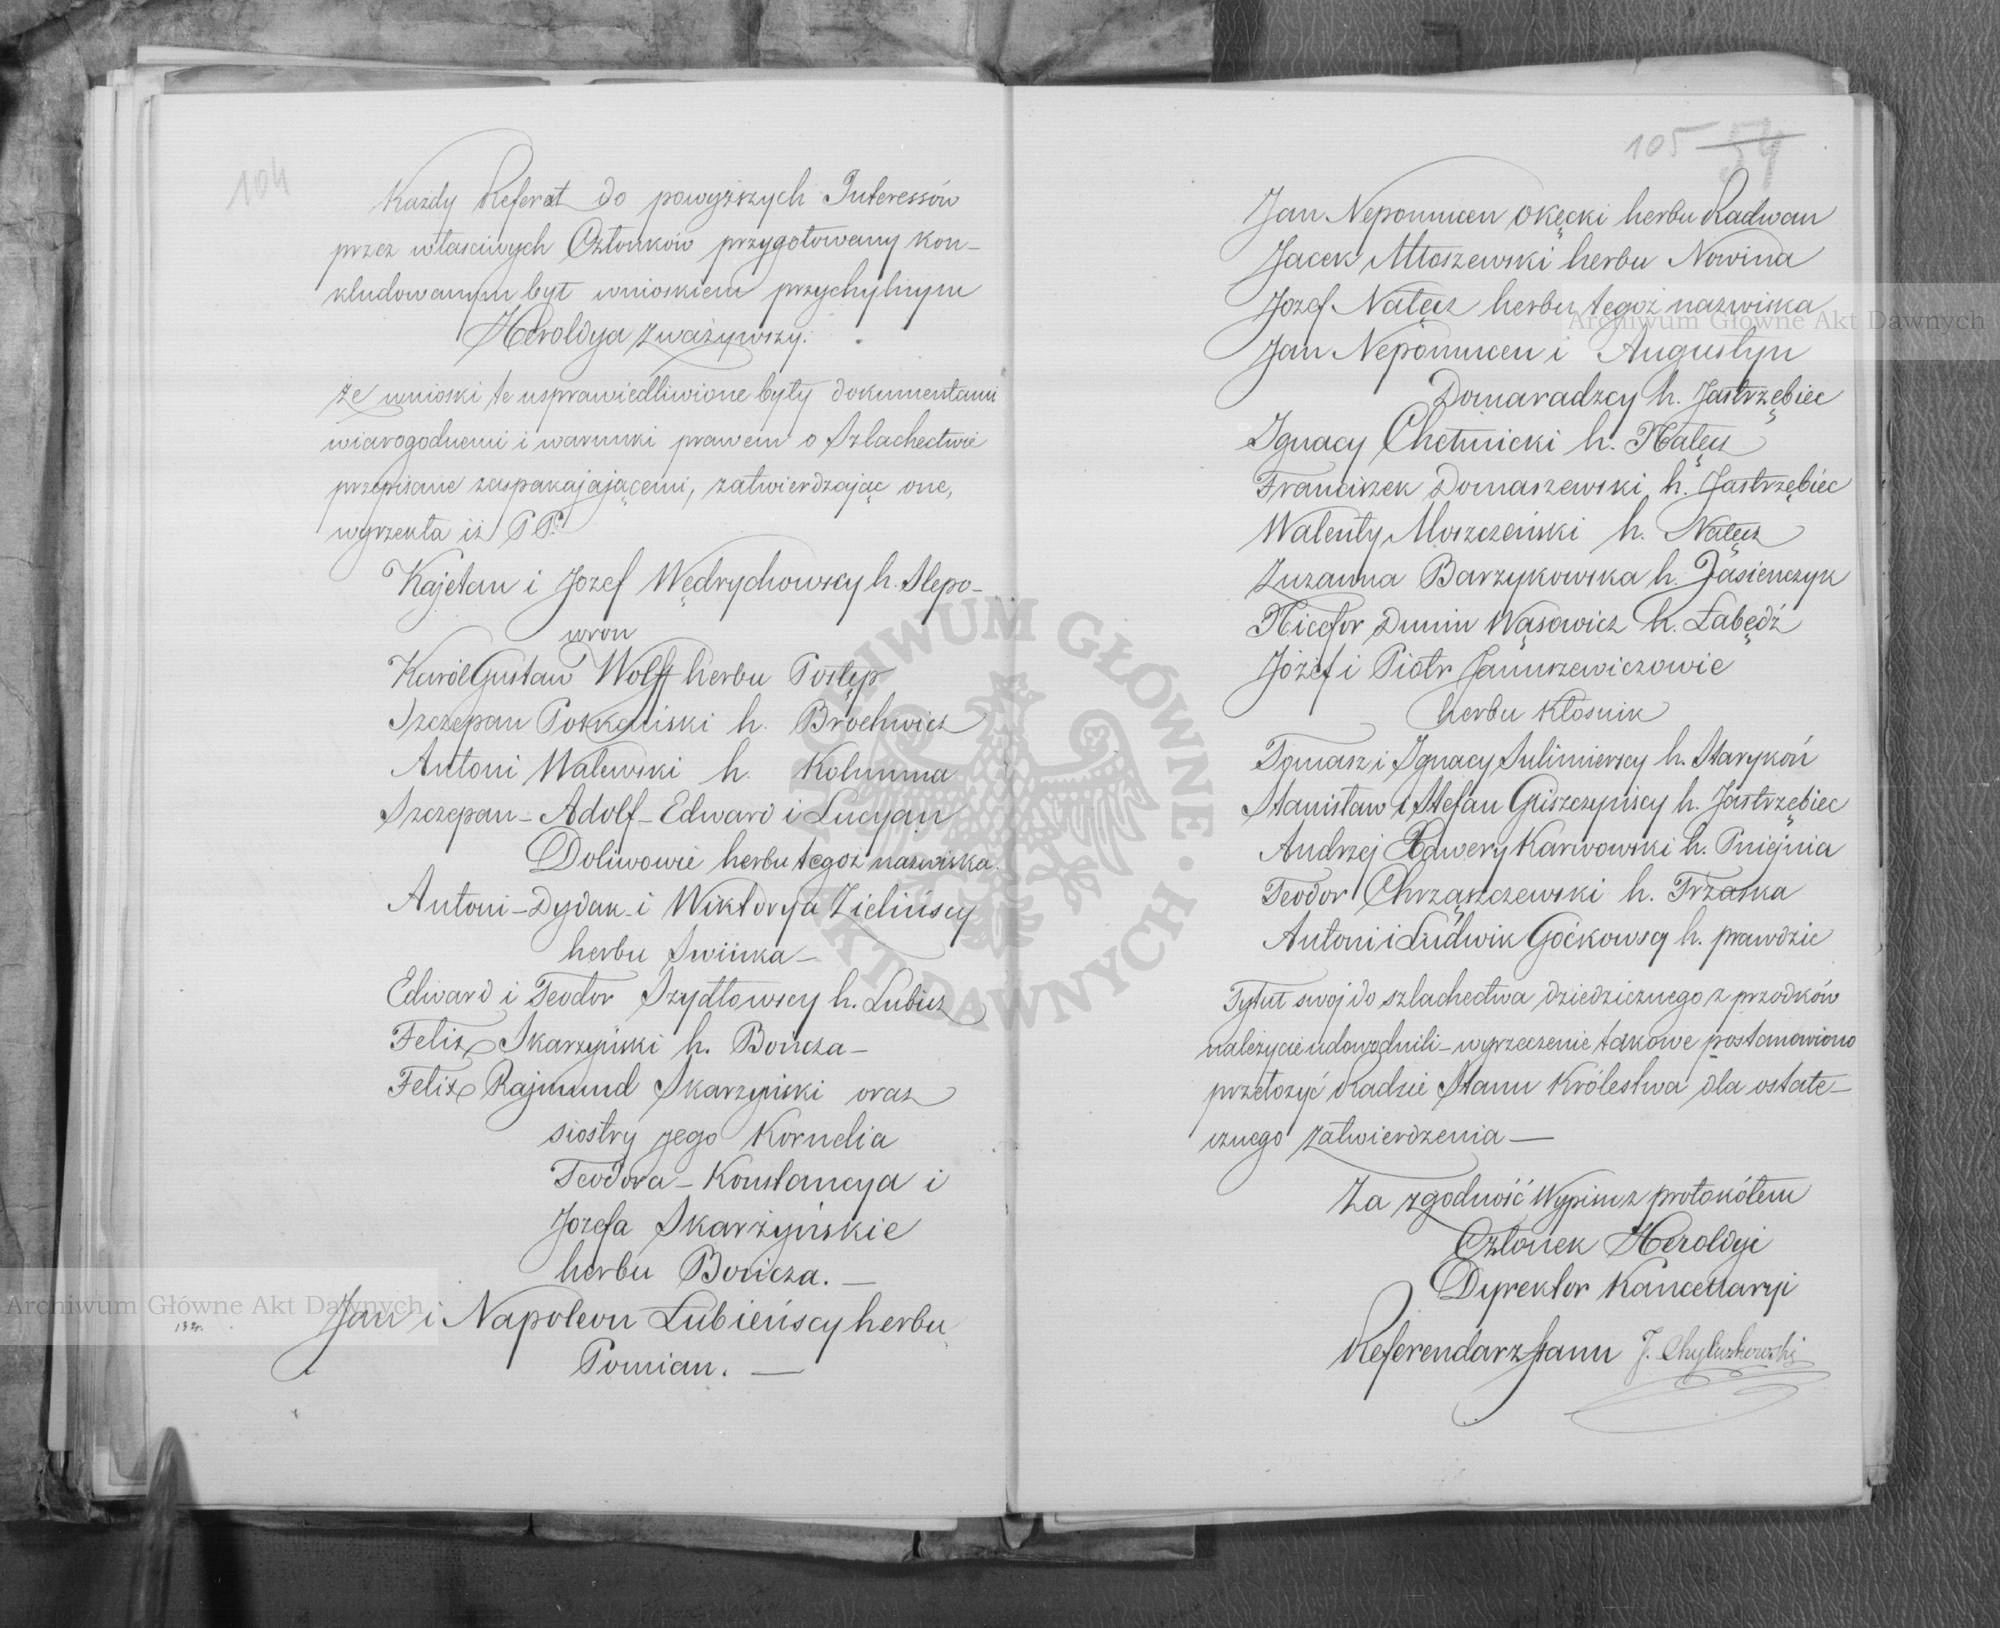 104
Każdy Referat do powyższych Interessów
przez właściwych Członków przygotowany kon-
kludowanym był wnioskiem przychylnym
Heroldya zważywszy:
że wnioski te usprawiedliwione były dokumentami
wiarogodnemi i warunki prawem o Szlachectwie
przepisane zaspakajającemi, zatwierdzając one,
wyrzekła iż PP.
Kajetan i Jozef Wędrychowscy h. Slepo-
wron
Karol Gustaw Wolff herbu Postęp
Szczepan Poskański h. Brochwicz
Antoni Walewski h. Kolumna
Szczepan - Adolf - Edward i Lucyan
Doliwowie herbu tegoż nazwiska.
Antoni - Dydak - i Wiktorya Zielińscy
herbu Swinka -
Edward i Teodor Szydłowscy h. Lubicz
Felix Skarzyński h. Bończa -
Felix Rajmund Skarzyński oraz
siostry jego Kornelia
Teodora - Konstancya i
Jozefa Skarżyńskie
herbu Bończa. -
Jan i Napoleon Lubieńscy herbu
Pomian. -
105 54
Jan Nepomucen Okęcki herbu Radwan
Jacek Młoszewski herbu Nowina
Jozef Nałęcz herbu tegoż nazwiska
Jan Nepomucen i Augustyn
Domaradzcy h. Jastrzębiec
Ignacy Chełmicki h. Nałęcz
Franciszek Domaszewski h. Jastrzębiec
Walenty Moszczeński h. Nałęcz
Zuzanna Barzykowska h. Jasieńczyk
Nicefor Dunin Wąsowicz h. Łabędź
Józef i Piotr Januszewiczowie
herbu Kłośnik
Tomasz i Ignacy Sulimierscy h. Starykoń
Stanisław i Stefan Giszczyńscy h. Jastrzębiec
Andrzej Xawery Karwowski h. Pniejnia
Teodor Chrząszczewski h. Trzaska
Antoni i Ludwik Goćkowscy h. prawdzic
Tytuł swoj do szlachectwa dziedzicznego z przodków
należycie udowodnili - wyrzeczenie takowe postanowiono
przełożyć Radzie Stanu Królestwa dla ostate-
cznego zatwierdzenia -
Za zgodność Wypisu z protokółem
Członek Heroldyi
Dyrektor Kancellaryi
Referendarz Stanu
Archiwum Główne Akt Dawnych
Archiwum Główne Akt Dawnych
ARCHIWUM GŁÓWNE • AKT DAWNYCH •